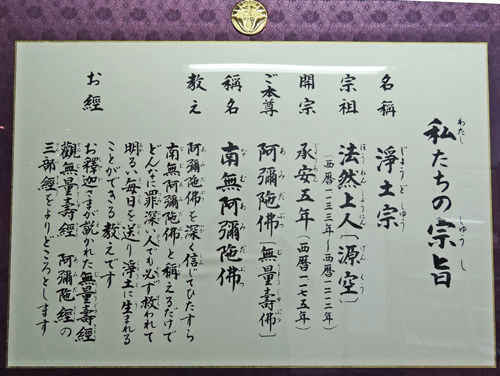 私たちの宗旨
名稱 淨土宗
宗祖 法然上人〔源空〕
（西暦一一三三年～西暦一二一二年）
開宗 承安五年（西暦一一七五年）
ご本尊 阿彌陀佛〔無量壽佛〕
稱名 南無阿彌陀佛
教え 阿彌陀佛を深く信じてひたすら
南無阿彌陀佛と稱えるだけで
どんなに罪深い人でも必ず救われて
明るい毎日を送り淨土に生まれる
ことができる教えです
お經 お釋迦さまが説かれた無量壽經
觀無量壽經 阿彌陀經の
三部經をよりどころとします